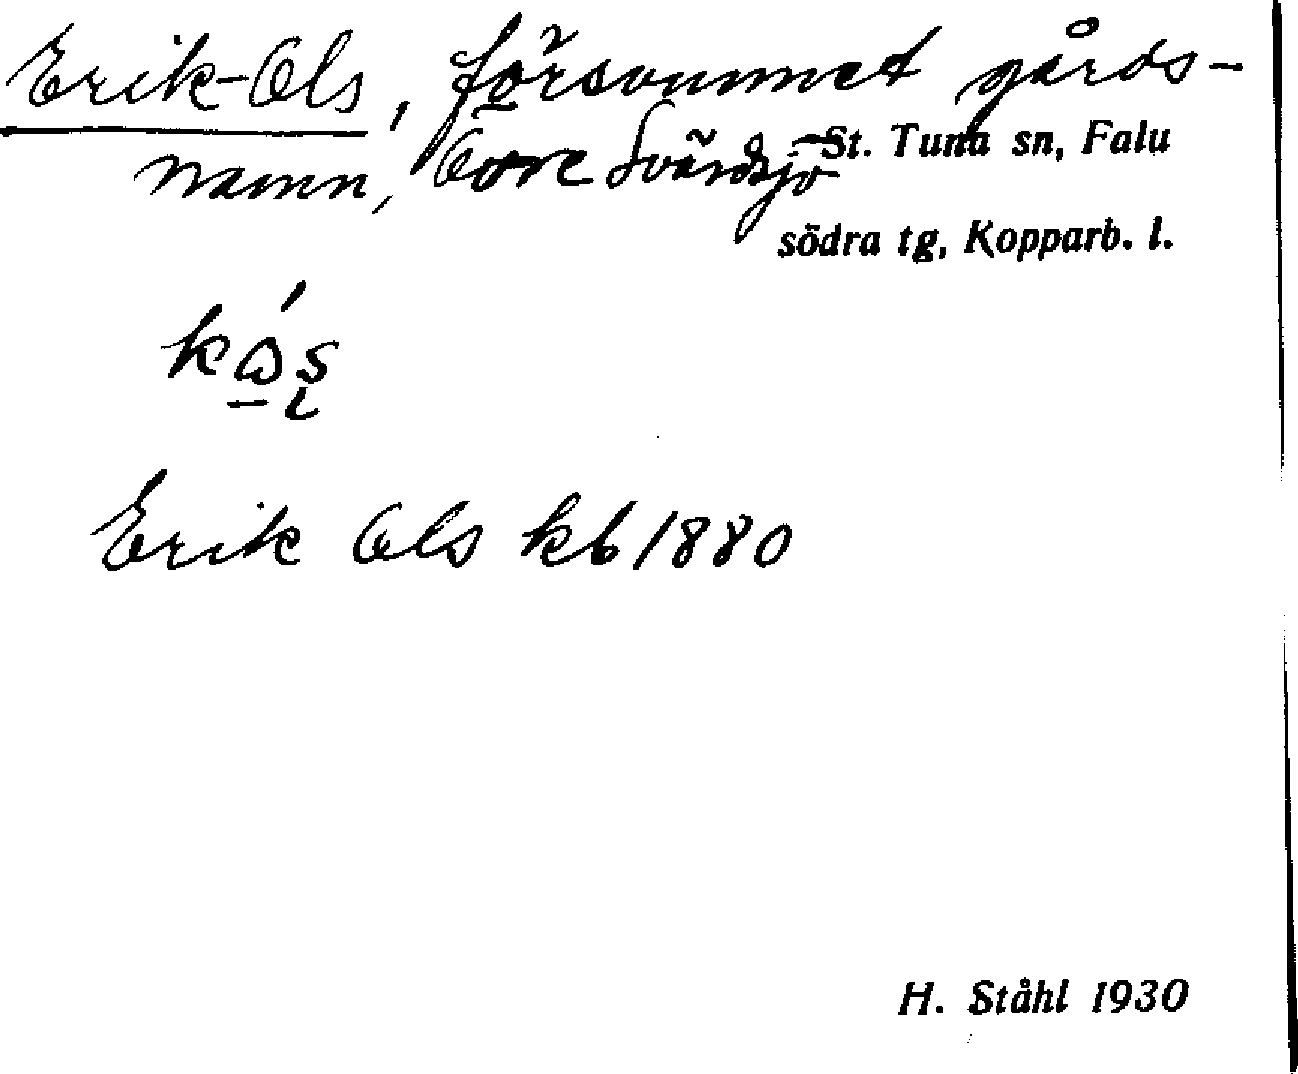 Erik-Ols, försvunnet gårds-
namn, Övre Svärdsjö St. Tuna sn, Falu
södra tg, Kopparb. l.
Erik Ols kb 1880
H. Ståhl 1930